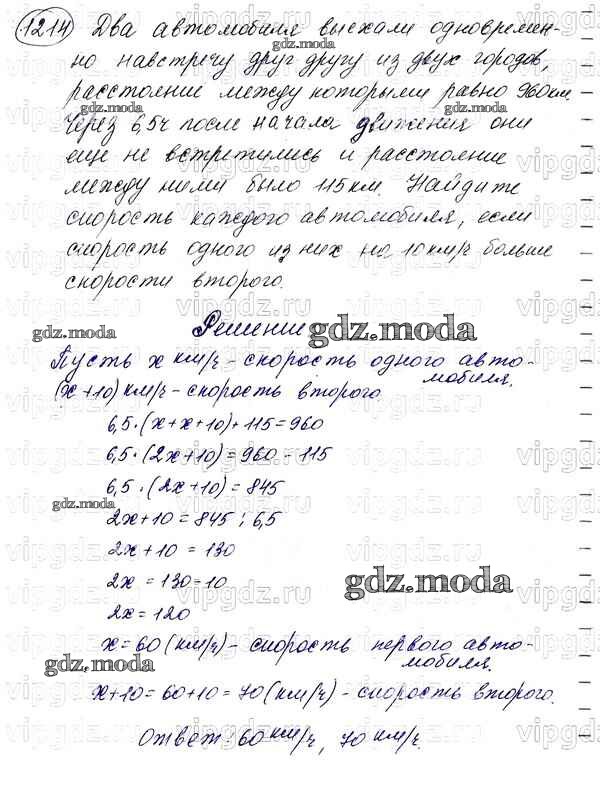 1214 Два автомобиля выехали одновремен-
но навстречу друг другу из двух городов,
расстояние между которыми равно 960 км.
Через 6,5 ч после начала движения они
еще не встретились и расстояние
между ними было 115 км. Найдите
скорость каждого автомобиля, если
скорость одного из них на 10 км/ч больше
скорости второго.
Решение
Пусть х км/ч - скорость одного авто-
мобиля.
(х+10) км/ч - скорость второго
6,5·(х+х+10)+115=960
6,5·(2х+10)=960-115
6,5·(2х+10)=845
2х+10=845:6,5
2х+10=130
2х=130=10
2х=120
х=60 (км/ч) - скорость первого авто-
мобиля.
х+10=60+10=70 (км/ч) - скорость второго.
Ответ: 60 км/ч, 70 км/ч.
gdz.moda
gdz.moda
gdz.moda
gdz.moda
gdz.moda
gdz.moda
gdz.moda
gdz.moda
gdz.moda
vipgdz